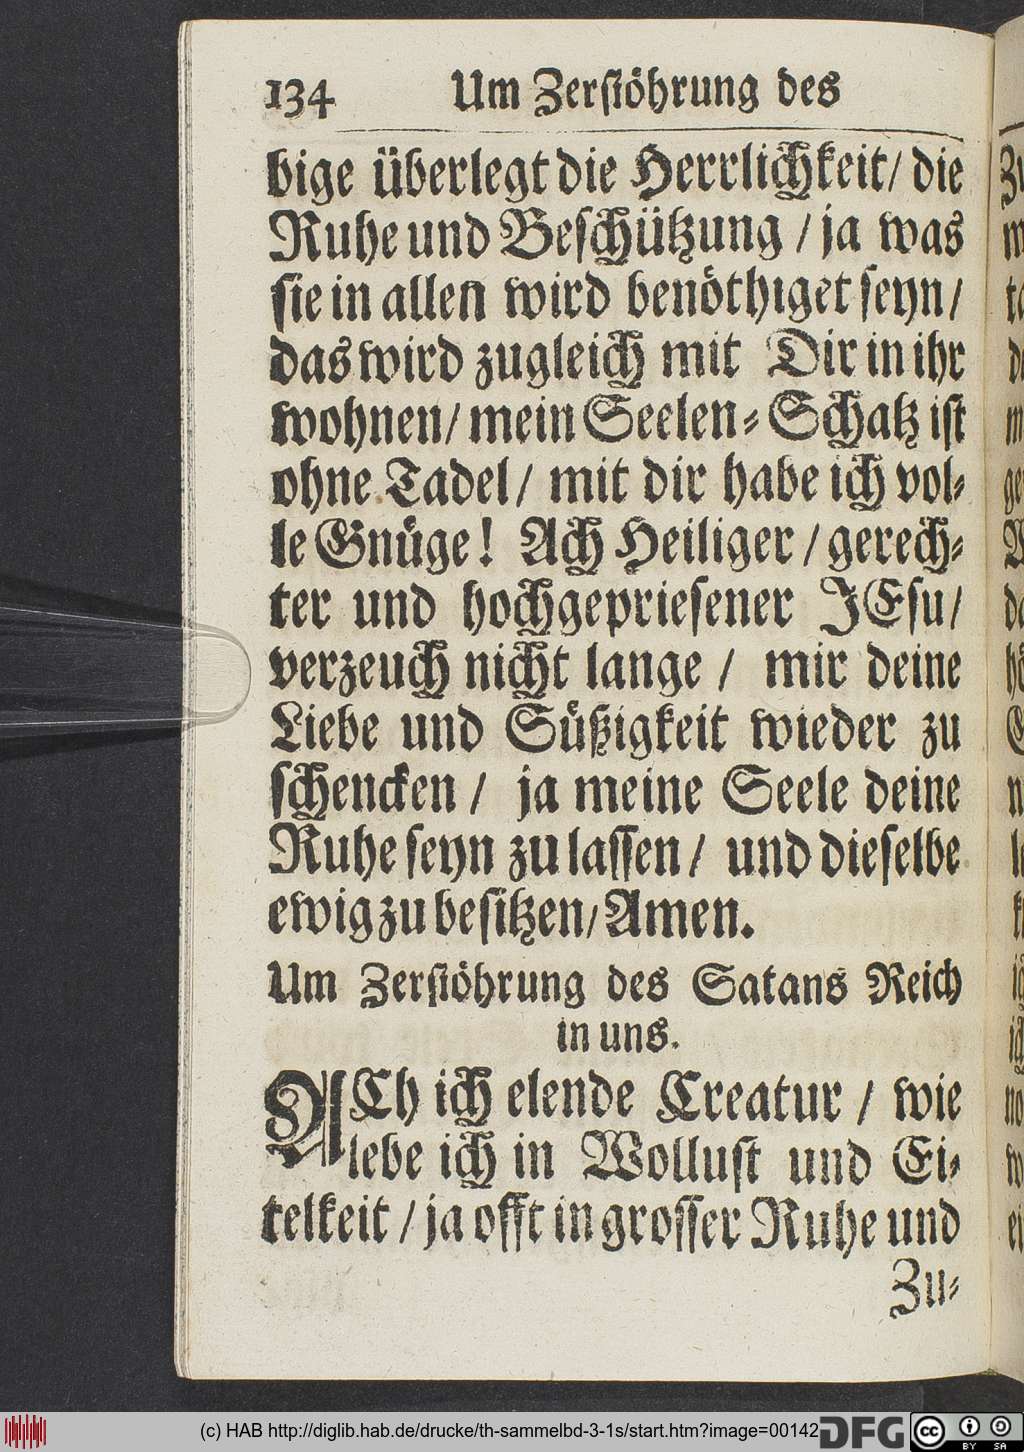 134 Um Zerstöhrung des
bige überlegt die Herrlichkeit/ die
Ruhe und Beschützung / ja was
sie in allen wird benöthiget seyn/
das wird zugleich mit Dir in ihr
wohnen/ mein Seelen-Schatz ist
ohne Tadel/ mit dir habe ich vol-
le Gnüge! Ach Heiliger / gerech-
ter und hochgepriesener JEsu/
verzeuch nicht lange / mir deine
Liebe und Süßigkeit wieder zu
schencken / ja meine Seele deine
Ruhe seyn zu lassen / und dieselbe
ewig zu besitzen/ Amen.
Um Zerstöhrung des Satans Reich
in uns.
ACh ich elende Creatur / wie
lebe ich in Wollust und Ei-
telkeit / ja offt in grosser Ruhe und
Zu-
(c) HAB http://diglib.hab.de/drucke/th-sammelbd-3-1s/start.htm?image=00142
DFG
cc BY SA